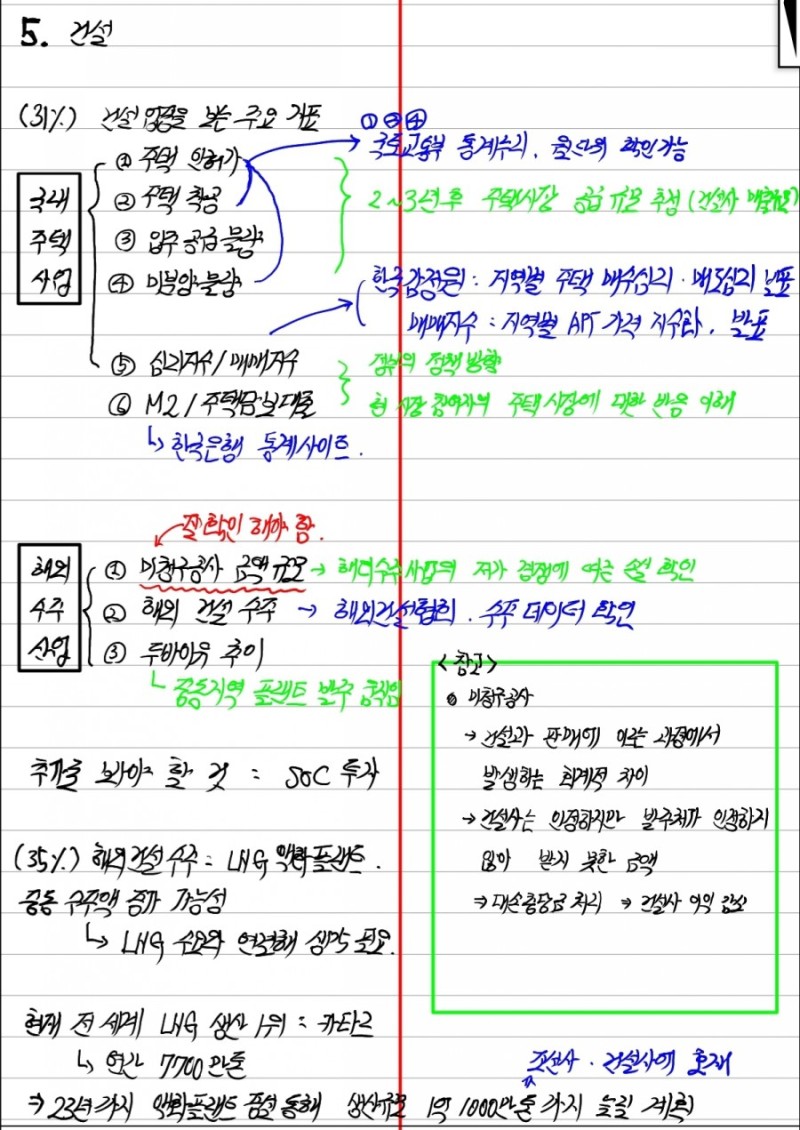 5. 건설
(31%) 건설 업황을 보는 주요 지표
① ② ④
국토교통부 통계누리, 월단위 확인가능
국내 주택 사업
① 주택 인허가
② 주택 착공
③ 입주 공급 물량
④ 미분양 물량
2~3년후 주택시장 공급 규모 추정 (건설사 매출규모)
한국감정원 : 지역별 주택 매수심리 · 매도심리 발표
매매지수 : 지역별 APT 가격 지수화, 발표
⑤ 심리지수 / 매매지수
⑥ M2 / 주택담보대출
정부의 정책 방향
현 시장 참여자의 주택시장에 대한 반응 이해
↳ 한국은행 통계사이트.
잘 확인 해야 함.
해외 수주 산업
① 미청구공사 금액 규모 → 해외수주사업의 저가 경쟁에 따른 손실 확인
② 해외 건설 수주 → 해외건설협회, 수주 데이터 확인
③ 두바이유 추이
↳ 중동지역 플랜트 발주 움직임
<참고>
• 미청구공사
→ 건설과 판매에 이르는 과정에서
발생하는 회계적 차이
→ 건설사는 인정하지만 발주처가 인정하지
않아 받지 못한 금액
⇒ 대손충당금 처리 ⇒ 건설사 이익 감소
추가로 봐야 할 것 : SOC 투자
(35%) 해외건설 수주 : LNG 액화플랜트.
중동 수주액 증가 가능성
↳ LNG 수요와 연결해 생각 필요.
현재 전 세계 LNG 생산 1위 : 카타르
↳ 연간 7700만톤
조선사 · 건설사에 호재
⇒ 23년까지 액화플랜트 증설 통해 생산규모 1억 1000만톤 까지 늘릴 계획